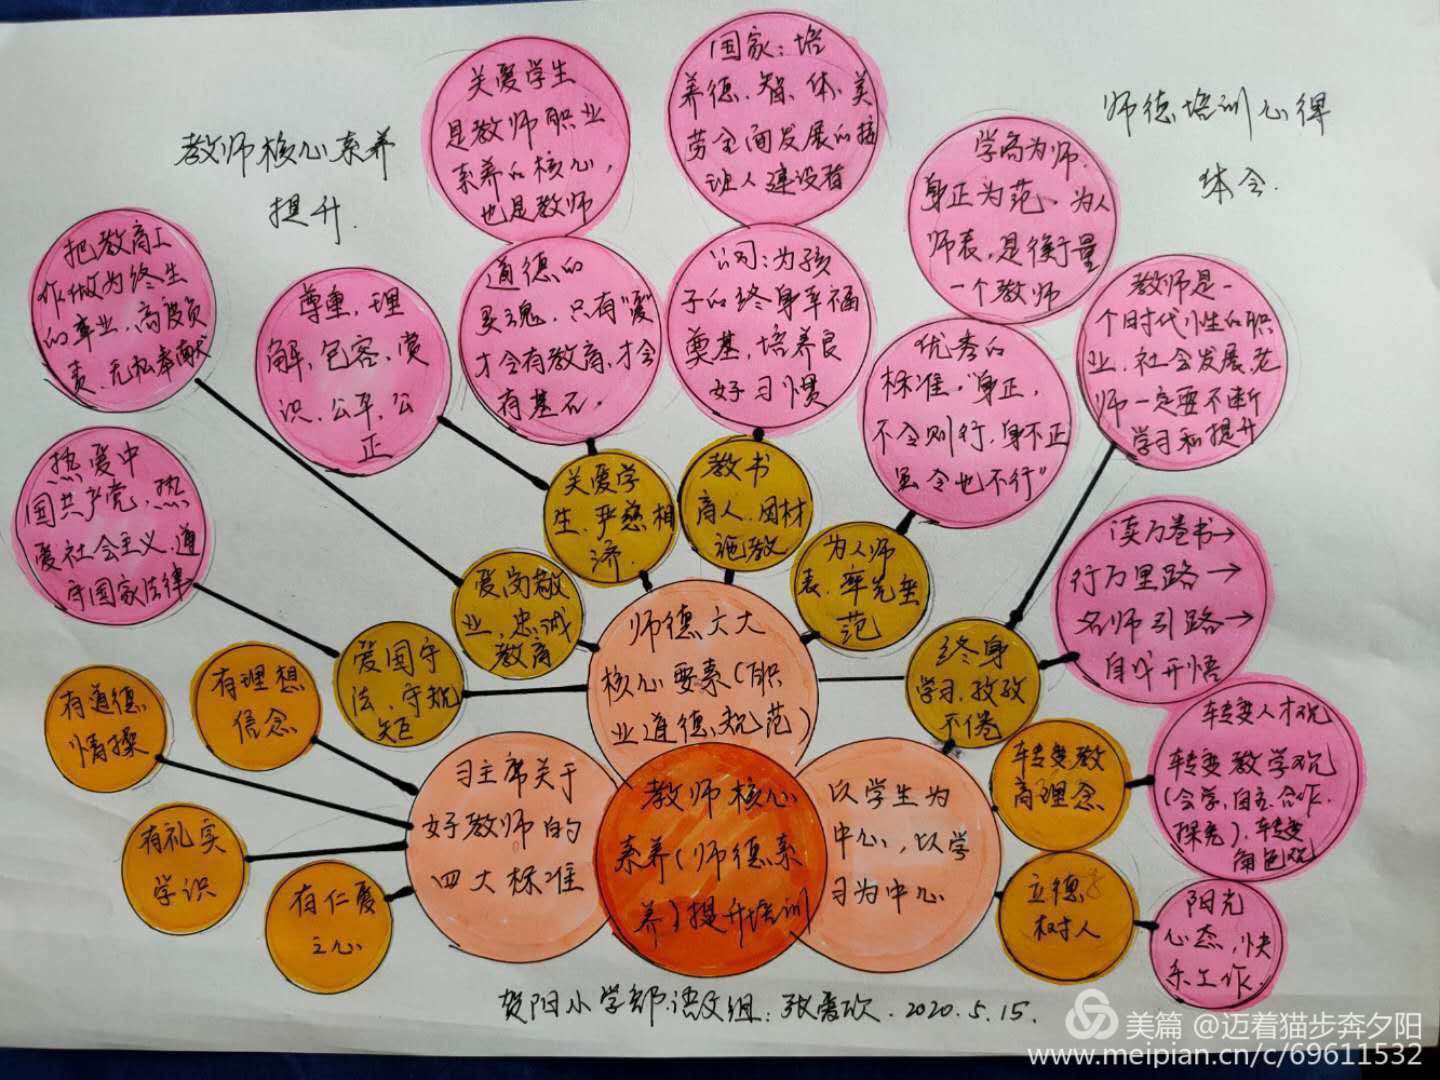 教师核心素养
提升.
师德培训心得
体会.
关爱学生
是教师职业
素养的核心,
也是教师
道德的
灵魂,只有“爱”
才会有教育,才会
有基石.
国家:培
养德、智、体、美
劳全面发展的接
班人建设者
公司:为孩
子的终身幸福
奠基,培养良
好习惯
学高为师.
身正为范、为人
师表,是衡量
一个教师
优秀的
标准.“身正,
不令则行,身不正
虽令也不行”
教师是一
个时代性的职
业,社会发展,老
师一定要不断
学习和提升
把教育工
作做为终生
的事业,高度负
责,无私奉献
尊重,理
解,包容,赏
识、公平,公
正
热爱中
国共产党,热
爱社会主义,遵
守国家法律
读万卷书→
行万里路→
名师引路→
自我开悟
关爱学
生,严慈相
济.
教书
育人,因材
施教
为人师
表,率先垂
范
爱岗敬
业,忠诚
教育
爱国守
法,守规
矩
终身
学习,孜孜
不倦
师德六大
核心要素(职
业道德规范)
有理想
信念
有道德
情操
有扎实
学识
有仁爱
之心
习主席关于
好教师的
四大标准
教师核心
素养(师德素
养)提升培训
以学生为
中心,以学
习为中心
转变教
育理念
立德
树人
转变人才观
转变教学观
(会学,自主.合作.
探究),转变
角色观
阳光
心态,快
乐工作.
贺阳小学部.语文组:张爱欣.2020.5.15.
美篇 @迈着猫步奔夕阳
www.meipian.cn/c/69611532